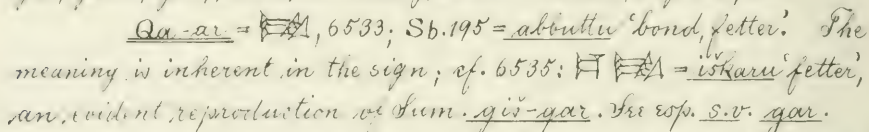 Qa-ar = , 6533; Sb. 195 = abuttu 'bond, fetter'. The
meaning is inherent in the sign; cf. 6535: = iškaru 'fetter',
an evident reproduction of Sum. giš-gar. See esp. s.v. gar.